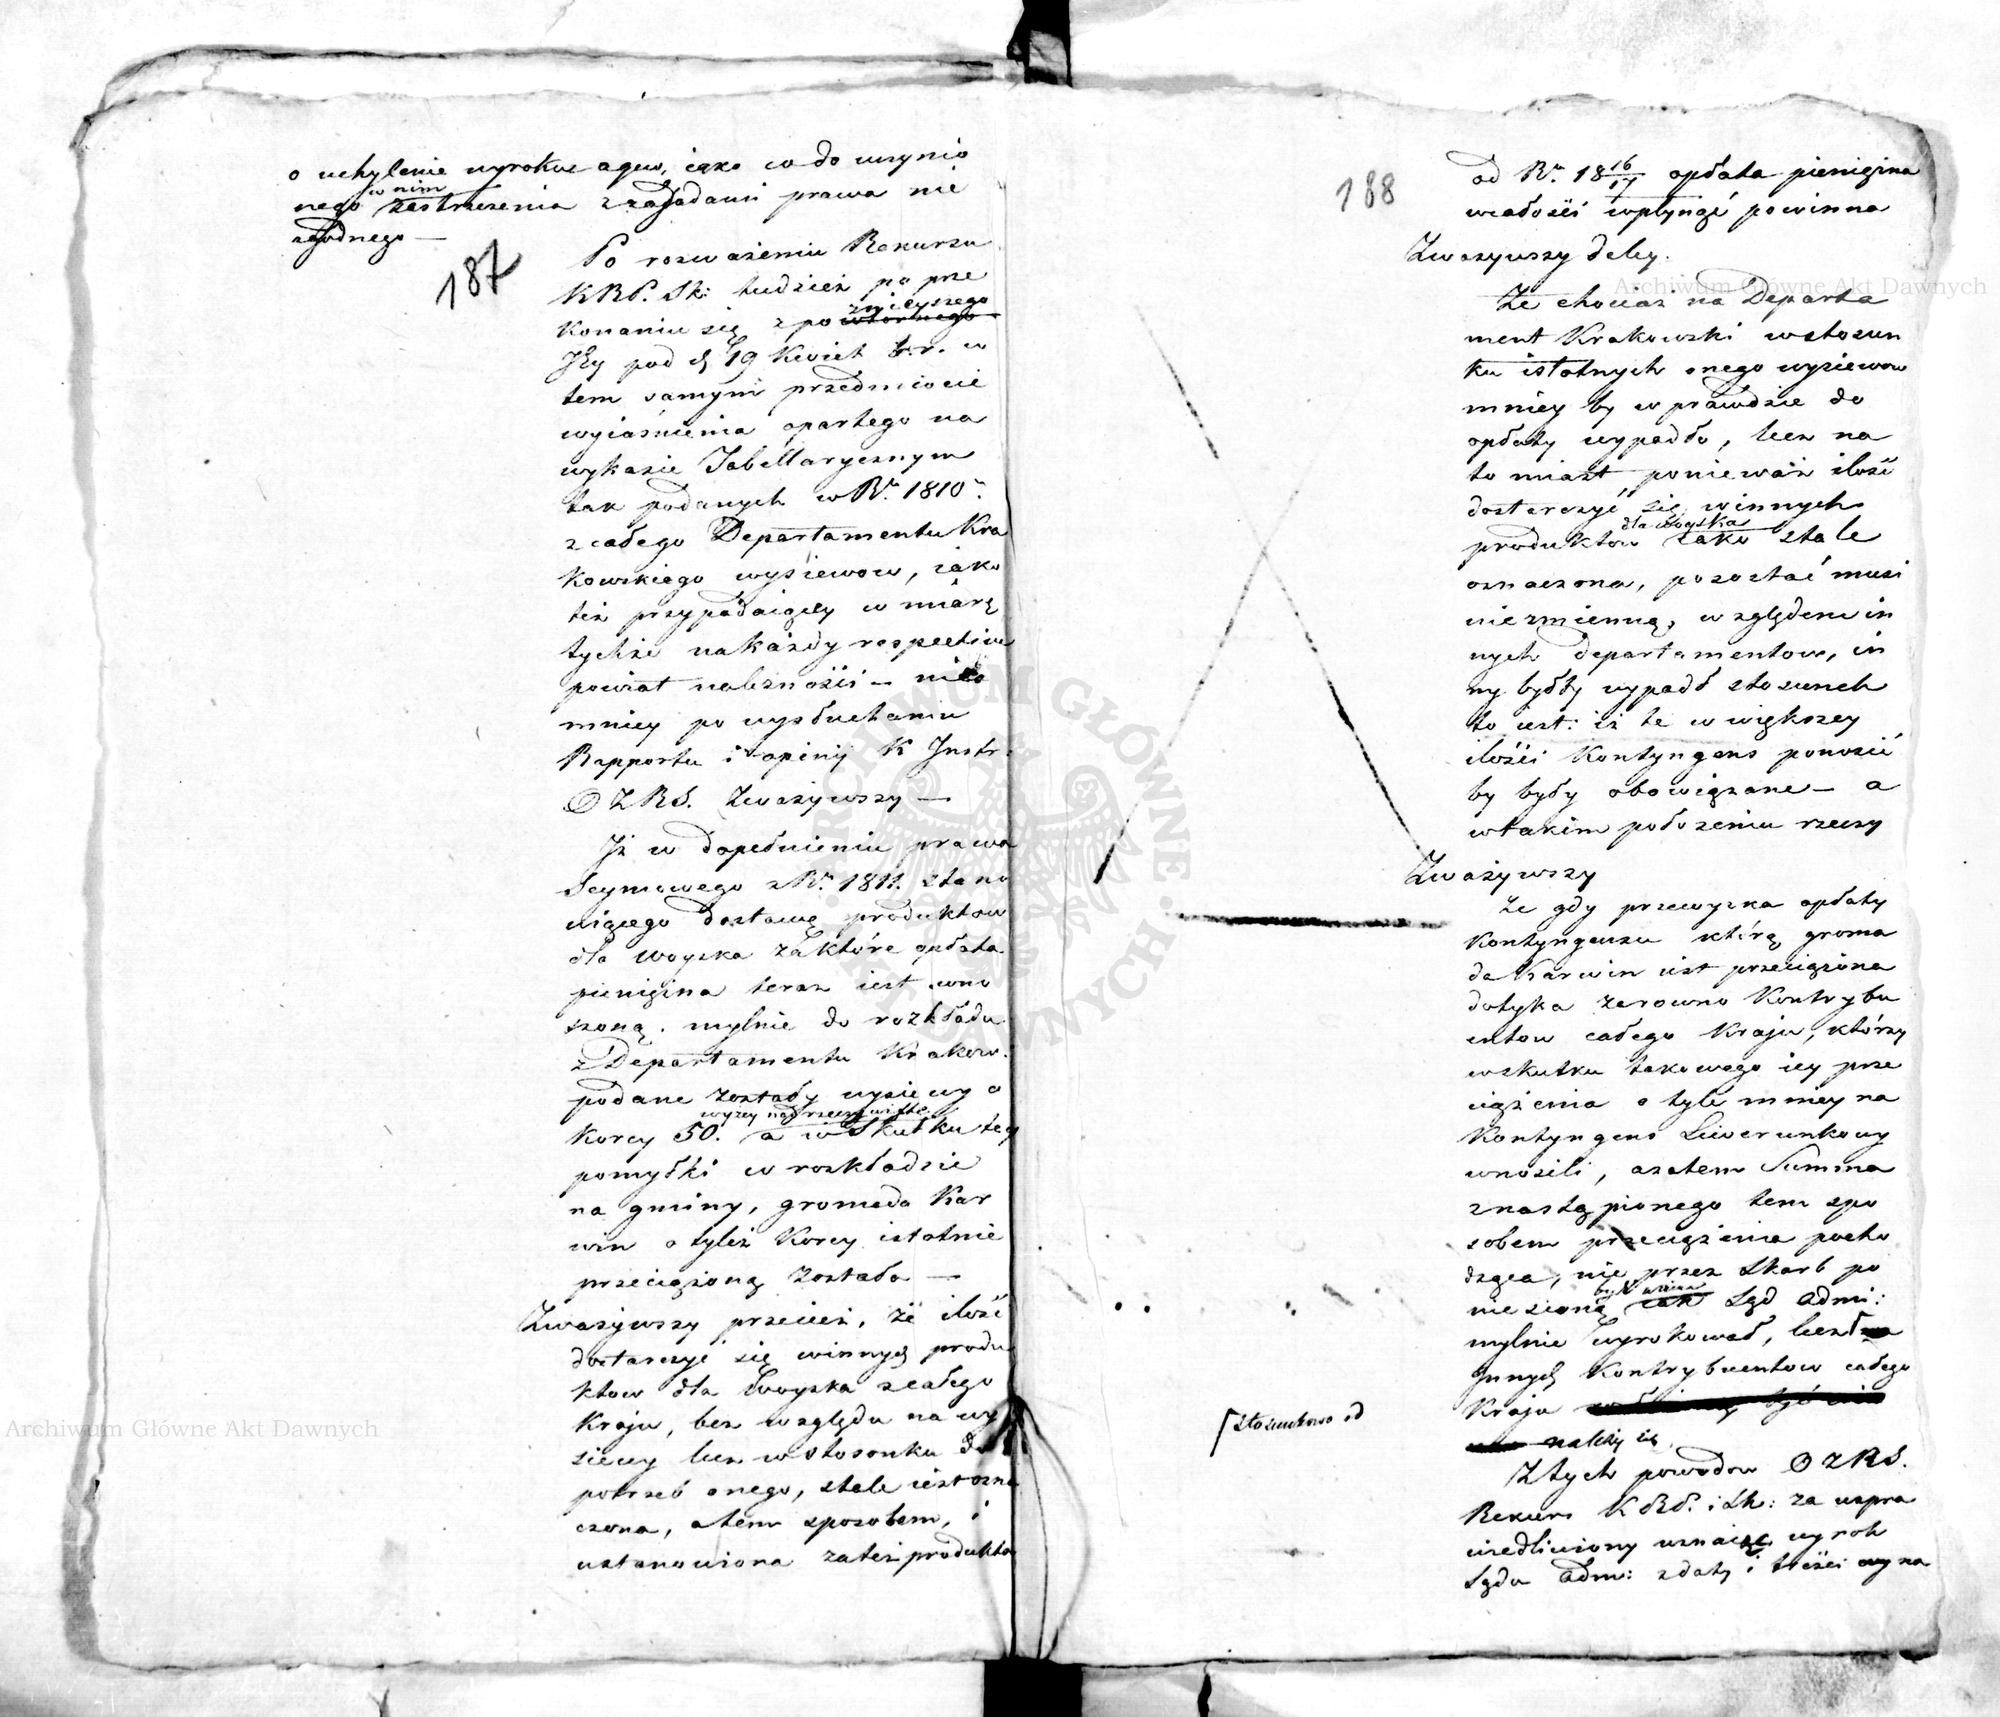 o uchylenie wyroku agwo, iako co do uczynio
w nim
nego zastrzezenia z zasadami prawa nie
zgodnego —
187
Po rozważeniu Rekursu
KRP. Sk: tudzież po prze
zniesionego
konaniu się z powtórnego
Jey pod d 19 Kwiet b.r. w
tem samym przedmiocie
wyiaśnienia opartego na
wykazie Tabellarycznym
tak podanych w Rᵘ 1810ᵐ
z całego Departamentu Kra
kowskiego wysiewow, iako
też przypadaiącey w miarę
tychże na każdy respective
powiat należności — nie
mniey po wysłuchaniu
Rapportu i opinij K Instr:
OZRS. Zważywszy —
Iż w dopełnieniu prawa
Seymowego z Rᵘ 1811. stano
wiącego dostawę produktow
dla woyska za które opłata
pieniężna teraz iest wno
szoną, mylnie do rozkładu
z Departamentu Krakow:
podane zostały wysiewy o
wyzey nad rzeczywiste
korcy 50. a w skutku tey
pomyłki w rozkładzie
na gminy, gromada Kar
win o tyleż korcy istotnie
przeciążoną została —
Zważywszy przecież, że ilość
dostarczyć się winnych produ
ktow dla woyska z całego
Kraju, bez względu na wy
siewy lecz w stosunku do
potrzeb onego, stale iest ozna
czona, a tem sposobem, i
ustanowiona za też produkta
188
od Rᵘ 18 16/17 opłata pieniężna
w całości wpłynąć powinna
Zważywszy daley.
Że chociaż na Departa
ment Krakowski w stosun
ku istotnych onego wysiewow
mniey by wprawdzie do
opłaty wypadło, lecz na
to miast ponieważ ilość
dostarczyć się winnych
dla woyska
produktow iako stale
oznaczona, pozostać musi
niezmienną, względem in
nych departamentow, in
ny byłby wypadł stosunek
to iest: iż te w większey
ilości Kontyngens ponosić
by były obowiązane — a
w takim położeniu rzeczy
Zważywszy
że gdy przewyżka opłaty
Kontyngensu którą groma
da Karwin iest przeciążona
dotyka zarowno Kontrybu
entow całego Kraju, którzy
w skutku takowego iey prze
ciążenia o tyle mniey na
Kontyngens Liwerunkowy
wnosili, a zatem Summa
z nastąpionego tem spo
sobem przeciążenia pocho
dząca, nie przez Skarb po
niesioną iak Sąd Admi:
mylnie wyrokował, lecz
Innych Kontrybuentow całego
Kraju
[stosunkowo od
należy się.
Z tych powodow OZRS.
Rekurs KRP. i Sk: za uspra
wiedliwiony uznaiąc wyrok
Sądu Adm: z daty i treści wyna
Archiwum Główne Akt Dawnych
Archiwum Główne Akt Dawnych
ARCHIWUM GŁÓWNE · AKT DAWNYCH ·